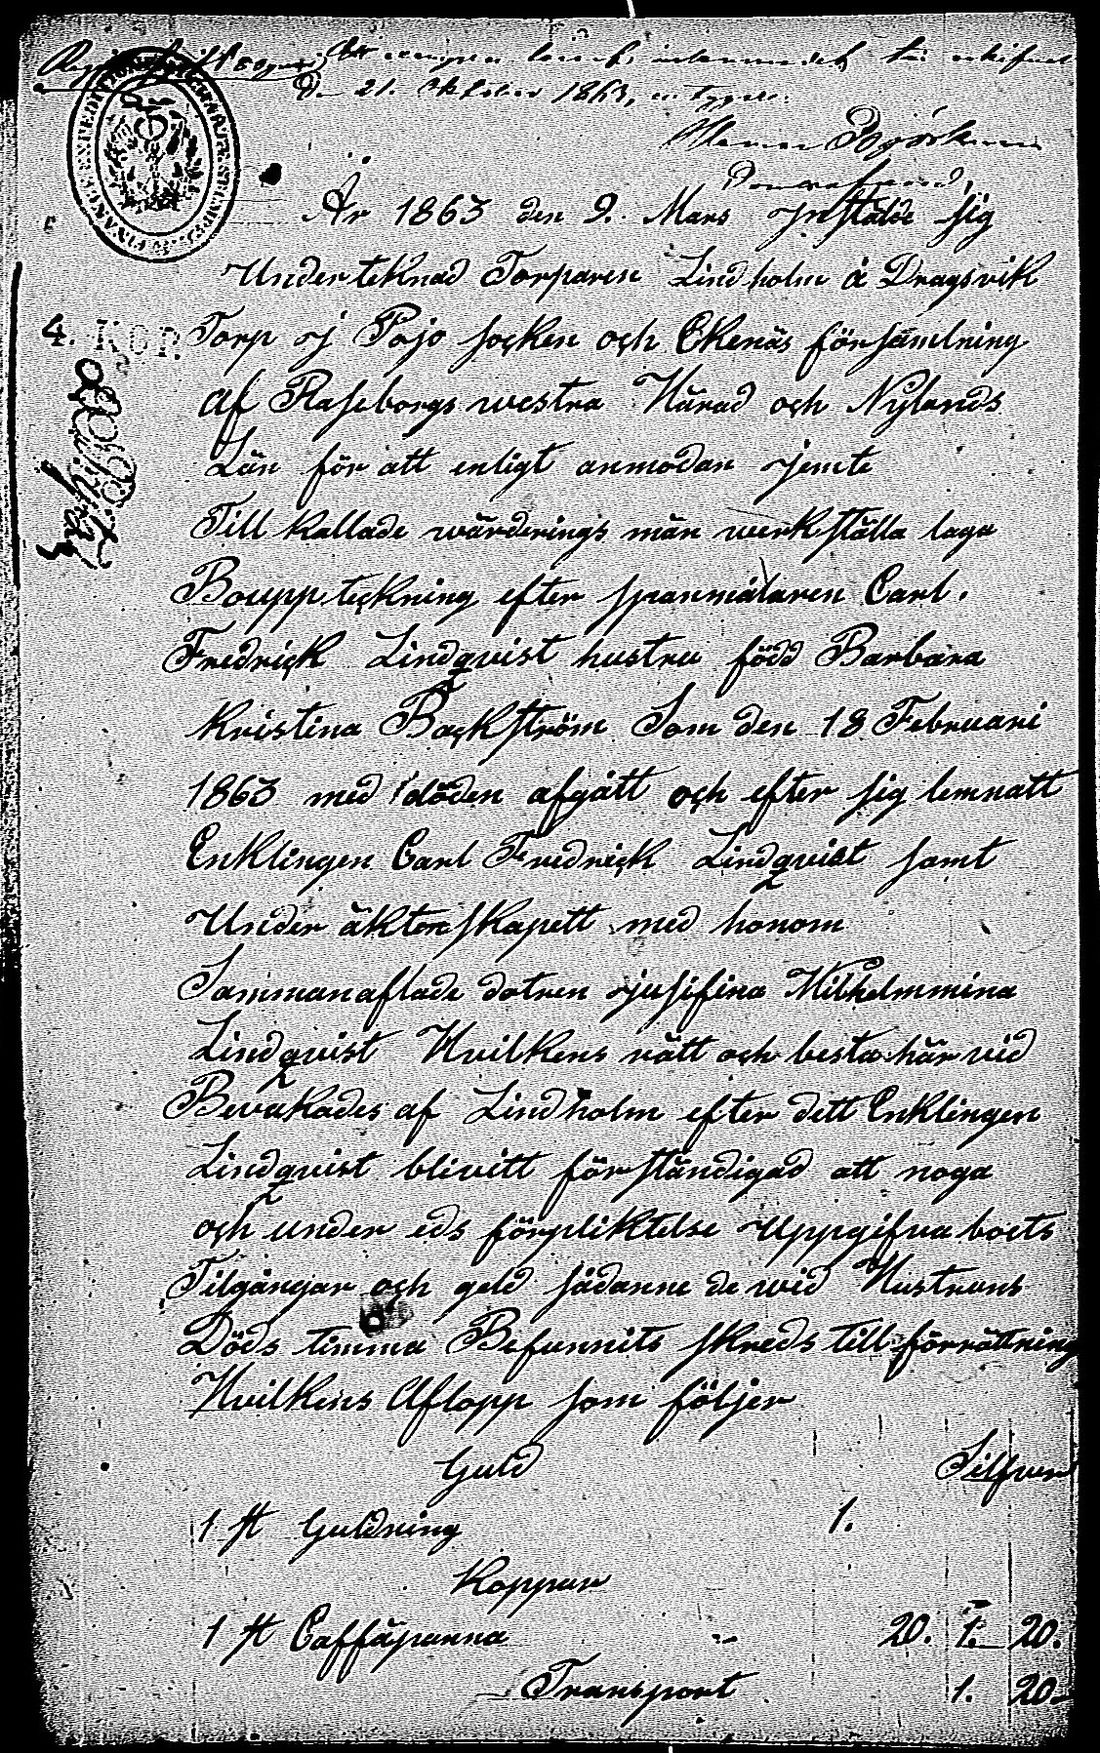 den 21. Oktober 1863, intygar.
År 1863 den 9. Mars instälde sig
Underteknad Torparen Lindholm å Dragsvik
4. KOP. Torp ij Pojo socken och Ekenäs församlning
af Raseborgs westra Härad och Nylands
Län för att enligt anmodan jemte
Till kallade wärderings män werkställa laga
Boupptekning efter spanmålaren Carl.
Fredrick Lindqvist hustru född Barbara
Kristina Backström Som den 18 Februari
1863 med döden afgått och efter sig lemnatt
Enklingen Carl Fredrick Lindqvist samt
Under äktenskapett med honom
Sammanaflade dotren Jusifina Wilhelmmina
Lindqvist Hvilkens rätt och besta härvid
Bevakades af Lindholm efter dett Enklingen
Lindqvist blivitt förständigad att noga
och under eds förpliktelse Uppgifva boets
Tilgångar och geld sådanne de wid Hustruns
Döds timma Befunnits skreds till förrättning
Hvilkens Aflopp som följer
Guld Silfver
1 st Guldring 1.
Koppar
1 st Caffäpanna 20. 1. 20.
Transport 1. 20